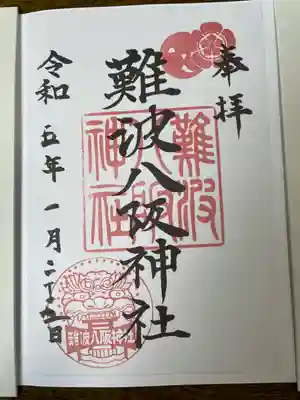 奉拝
難波八阪神社
難波
八阪
神社
令和五年一月二十五日
難波八阪神社